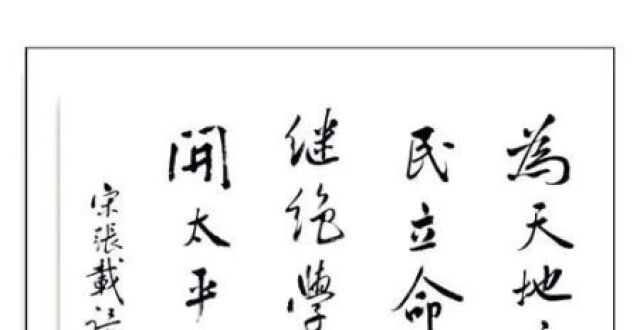 為天地
民立命
继绝學
開太平
宋張載